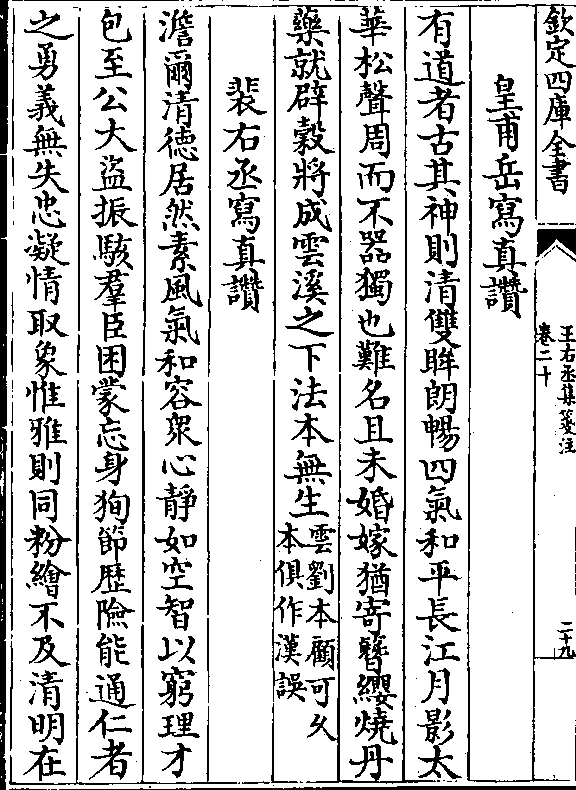 欽定四庫全書
王右丞集箋注
卷二十
二十九
皇甫岳寫真讚
有道者古其神則清雙眸朗暢四氣和平長江月影太
華松聲周而不器獨也難名且未婚嫁猶寄簪纓燒丹
藥就辟穀將成雲溪之下法本無生雲劉本顧可久
本俱作漢誤
裴右丞寫真讚
澹爾清德居然素風氣和容衆心静如空智以窮理才
包至公大盜振駭羣臣困蒙忘身狥節歴險能通仁者
之勇義無失忠凝情取象惟雅則同粉繪不及清明在